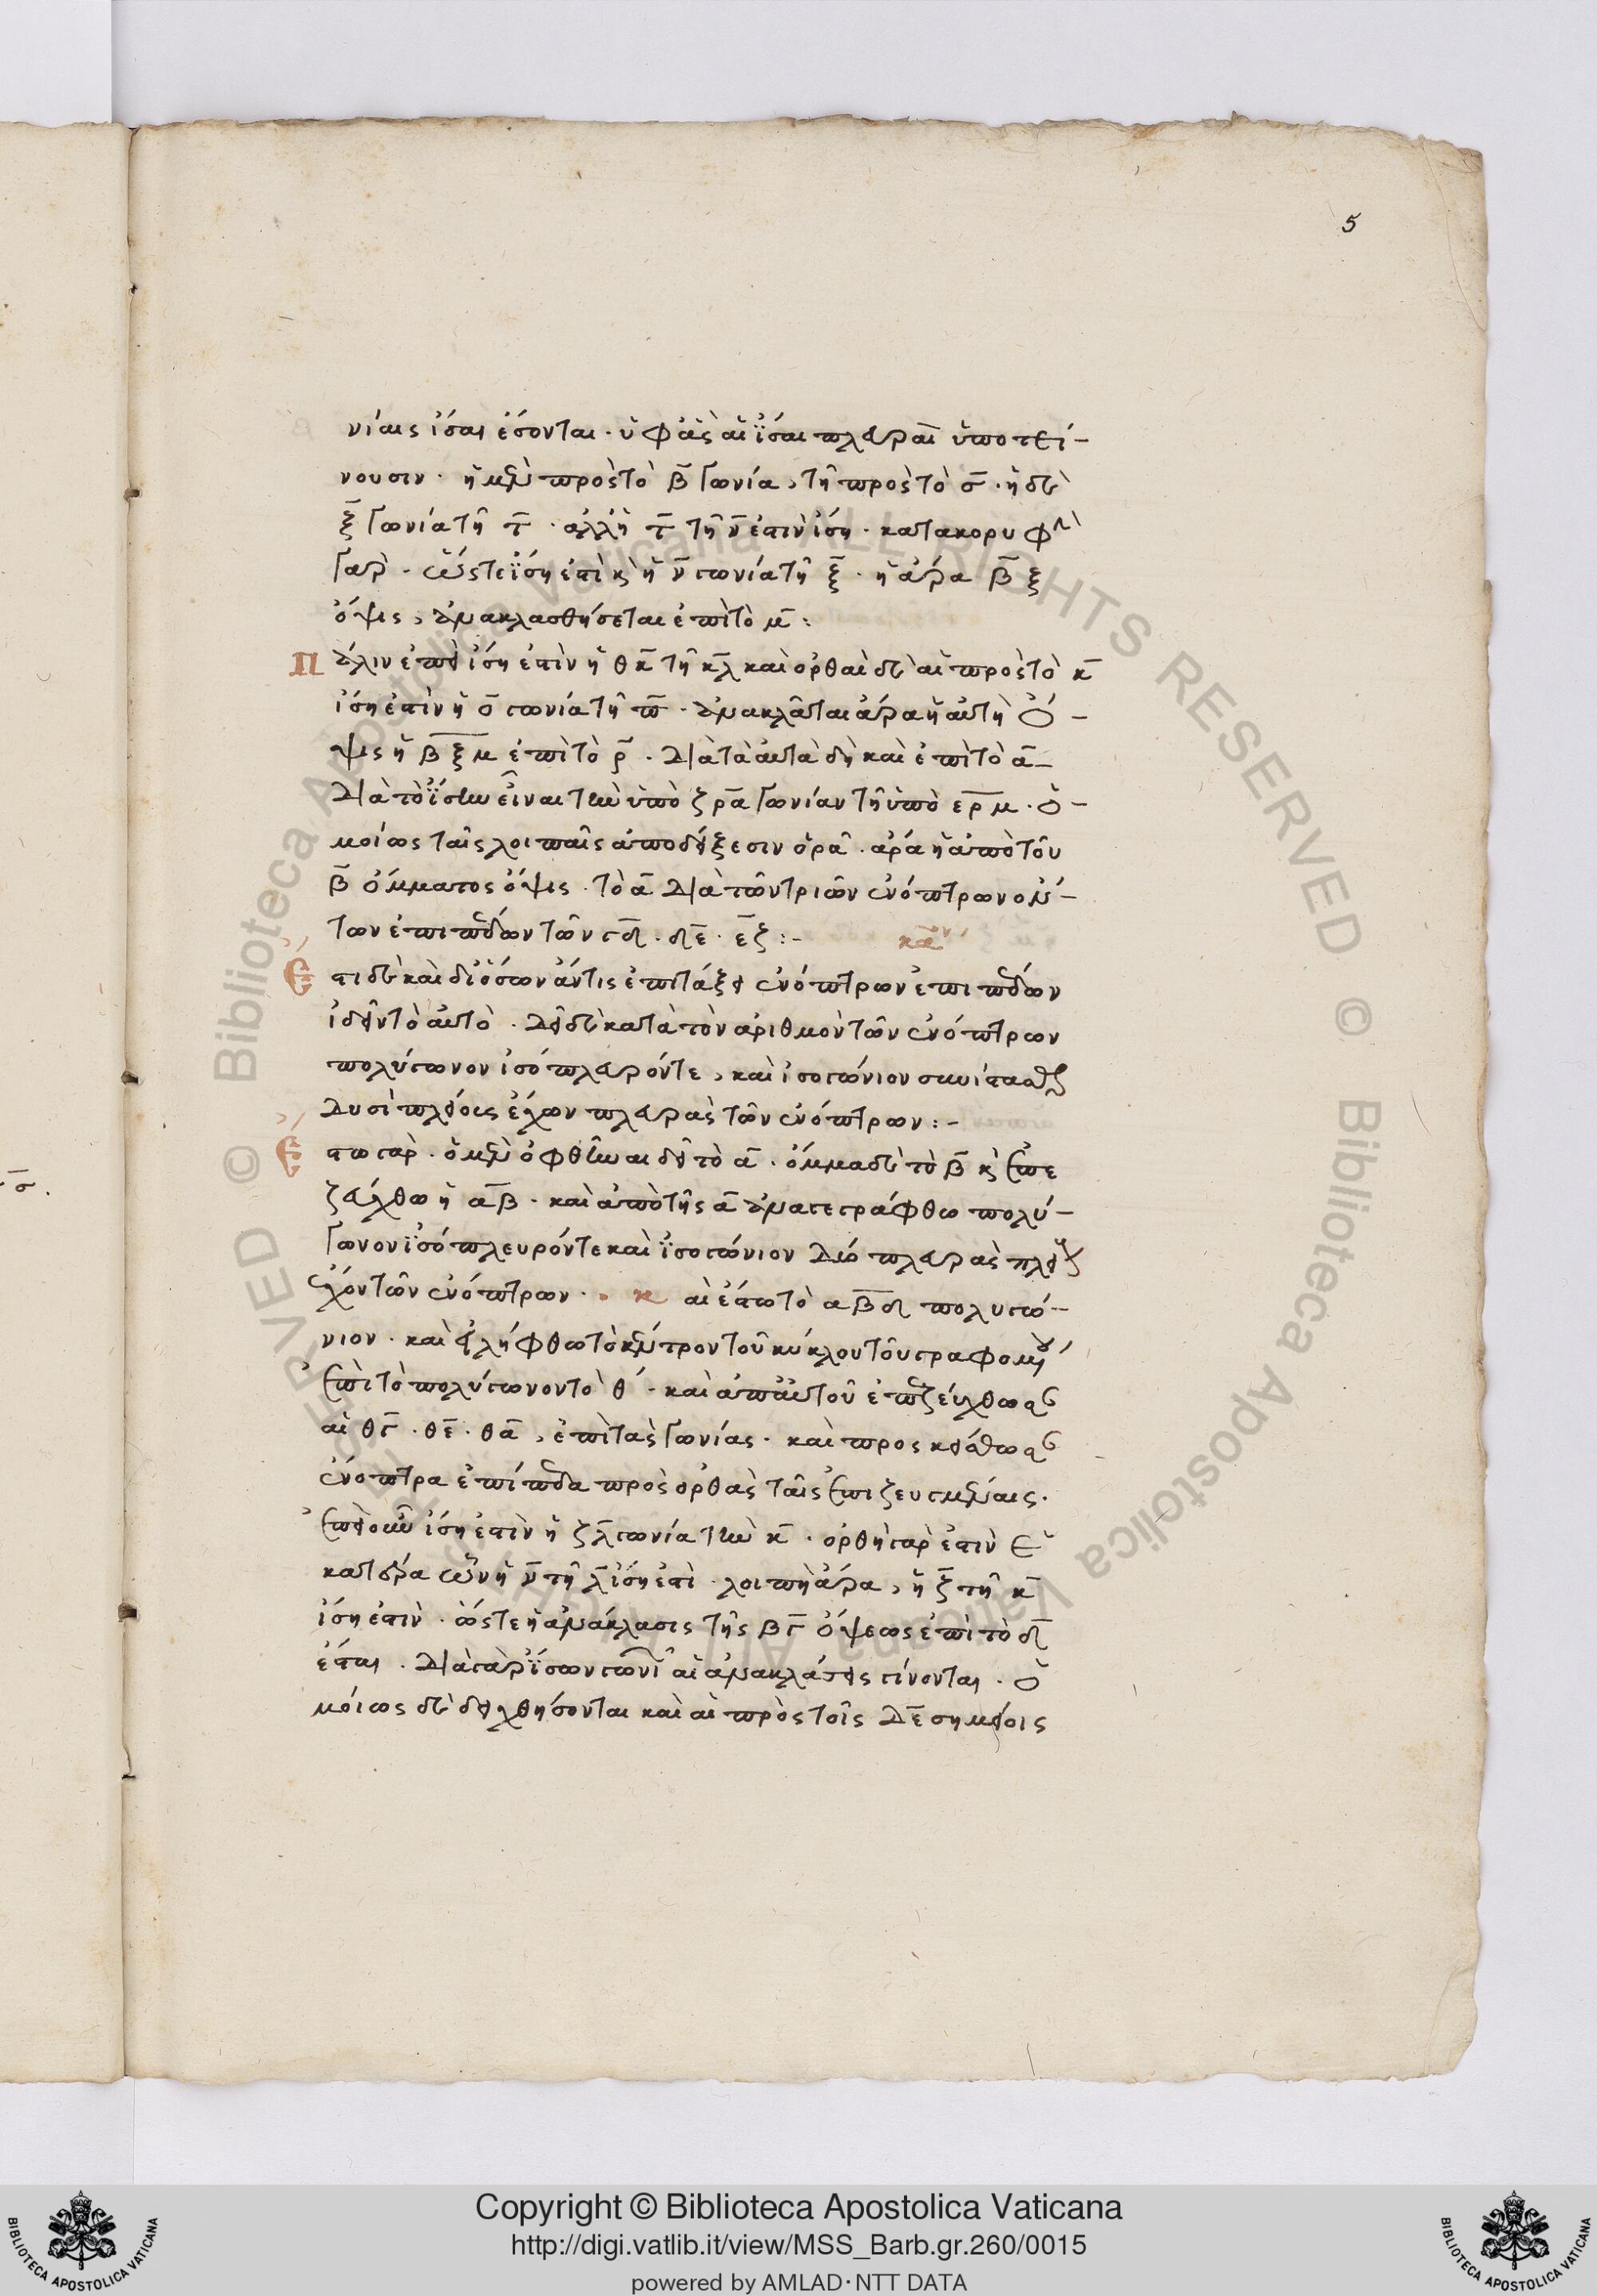 5
νίαις ἴσαι ἔσονται · ὑφ ἃς αἱ ἴσαι πλευραὶ ὑποτεί-
νουσιν · ἡ μὲν πρὸς τὸ β γωνία, τῆ πρὸς τὸ σ · ἡ δὲ
ξ γωνία τῆ τ · ἀλλ ἡ τ τῆ ν ἐστὶν ἴση · κατακορυφὴ
γαρ · ὥστε ἴση ἐστὶ κὶ ἡ ν γωνία τῆ ξ · ἡ ἄρα β ξ
ὄψις, ἀνακλασθήσεται ἐπὶ τὸ μ :
Πάλιν ἐπεὶ ἴση ἐστὶν ἡ θκ τῆ κλ καὶ ὀρθαὶ δὲ αἱ πρὸς τὸ κ
ἴση ἐστὶν ἡ ο γωνία τῆ π · ἀνακλᾶται ἄρα ἡ αὐτὴ ὄ-
ψις ἡ βξμ ἐπὶ τὸ ρ · Διὰ τὰ αὐτὰ δὴ καὶ ἐπὶ τὸ α-
Διὰ τὸ ἴσην εἶναι τὴν ὑπὸ ζρα γωνίαν τῆ ὑπὸ ερμ · ὁ-
μοίως ταῖς λοιπαῖς ἀποδείξεσιν ὁρᾶ · ἄρα ἡ ἀπὸ τοῦ
β ὄμματος ὄψις · τὸ α Διὰ τῶν τριῶν ἐνόπτρων ὄν-
των ἐπιπέδων τῶν γδ · δε · εζ :-
κα
Ἔστι δὲ καὶ δι ὅσων ἄν τις ἐπιτάξει ἐνόπτρων ἐπιπέδων
ἰδεῖν τὸ αὐτὸ · Δεῖ δὲ κατὰ τὸν ἀριθμὸν τῶν ἐνόπτρων
πολύγωνον ἰσόπλευρόν τε, καὶ ἰσογώνιον συνίστασθαι
Δυσὶ πλείοις ἔχων πλευρὰς τῶν ἐνόπτρων :-
Ἔστω γὰρ · ὃ μὲν ὀφθῆναι δεῖ τὸ α · ὄμμα δὲ τὸ β κὶ ἐπε
ζεύχθω ἡ αβ · καὶ ἀπὸ τῆς α ἀναγεγράφθω πολύ-
γωνον ἰσόπλευρόν τε καὶ ἰσογώνιον Δύο πλευρὰς πλείους
ἔχον τῶν ἐνόπτρων · κ αὶ ἔστω τὸ αβδ πολυγώ-
νιον · καὶ εἰλήφθω τὸ κέντρον τοῦ κύκλου τοῦ γραφομένου
ἐπὶ τὸ πολύγωνον τὸ θ · καὶ ἀπ αὐτοῦ ἐπεζεύχθωσαν
αἱ θγ · θε · θα, ἐπὶ τὰς γωνίας · καὶ προσκείσθωσαν
ἔνοπτρα ἐπίπεδα πρὸς ὀρθὰς ταῖς ἐπιζευγμέναις.
ἐπεὶ οὖν ἴση ἐστὶν ἡ ζλ γωνία τὴν κ · ὀρθὴ γάρ ἐστιν ἑ
κατέρα ὧν ἡ ν τῆ λ ἴση ἐστὶ · λοιπὴ ἄρα, ἡ ξ τῆ κ
ἴση ἐστὶν · ὥστε ἡ ἀνάκλασις τῆς βγ ὄψεως ἐπὶ τὸ δ
ἔσται · Διὰ γὰρ ἴσων γωνι αἱ ἀνακλάσεις γίνονται · ὁ
μοίως δὲ δειχθήσονται καὶ αἱ πρὸς τοῖς Δε σημείοις
σ.
© Biblioteca Apostolica Vaticana ALL RIGHTS RESERVED © Biblioteca Apostolica Vaticana ALL RIGHTS RESERVED
BIBLIOTECA APOSTOLICA VATICANA
Copyright © Biblioteca Apostolica Vaticana
http://digi.vatlib.it/view/MSS_Barb.gr.260/0015
powered by AMLAD·NTT DATA
BIBLIOTECA APOSTOLICA VATICANA